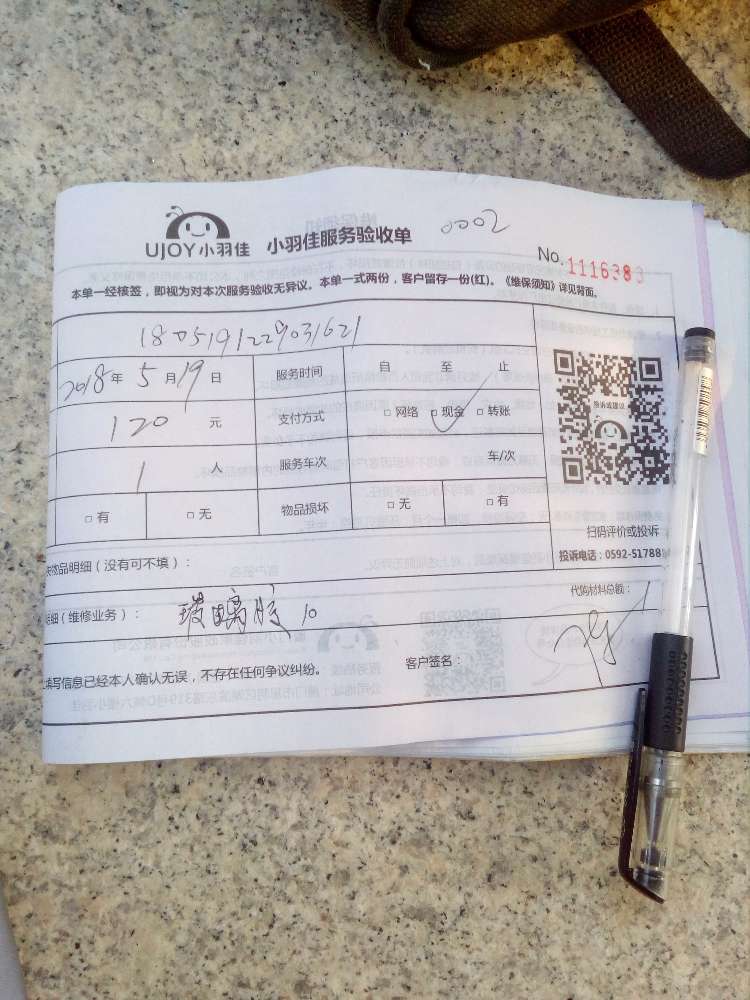 UJOY小羽佳 小羽佳服务验收单 0002
No. 1116383
本单一经核签,即视为对本次服务验收无异议。本单一式两份,客户留存一份(红)。《维保须知》详见背面。
180519122903 1621
2018年 5月19日 服务时间 自 至 止
120 元 支付方式 □网络 □现金 □转账
1 人 服务车次 车/次
□有 □无 物品损坏 □无 □有
投诉或建议
扫码评价或投诉
投诉电话:0592-51788
物品明细(没有可不填):
明细(维修业务): 玻璃胶 10 代购材料总额:
填写信息已经本人确认无误,不存在任何争议纠纷。 客户签名: